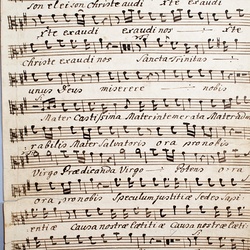 son elei son Christe audi xte exaudi
xte exaudi nos xte
Christe exaudi nos Sancta Trinitas
unus Deus miserere nobis
Mater Castissima Mater intemerata Mater adm
rabilis Mater Salvatoris ora pro nobis
Virgo Prædicanda Virgo Potens ora
ora pro nobis Speculum justitiæ Sedes Sapi
entiæ Causa nostræ Lætitiæ Causa nostræ Lætitiæ o